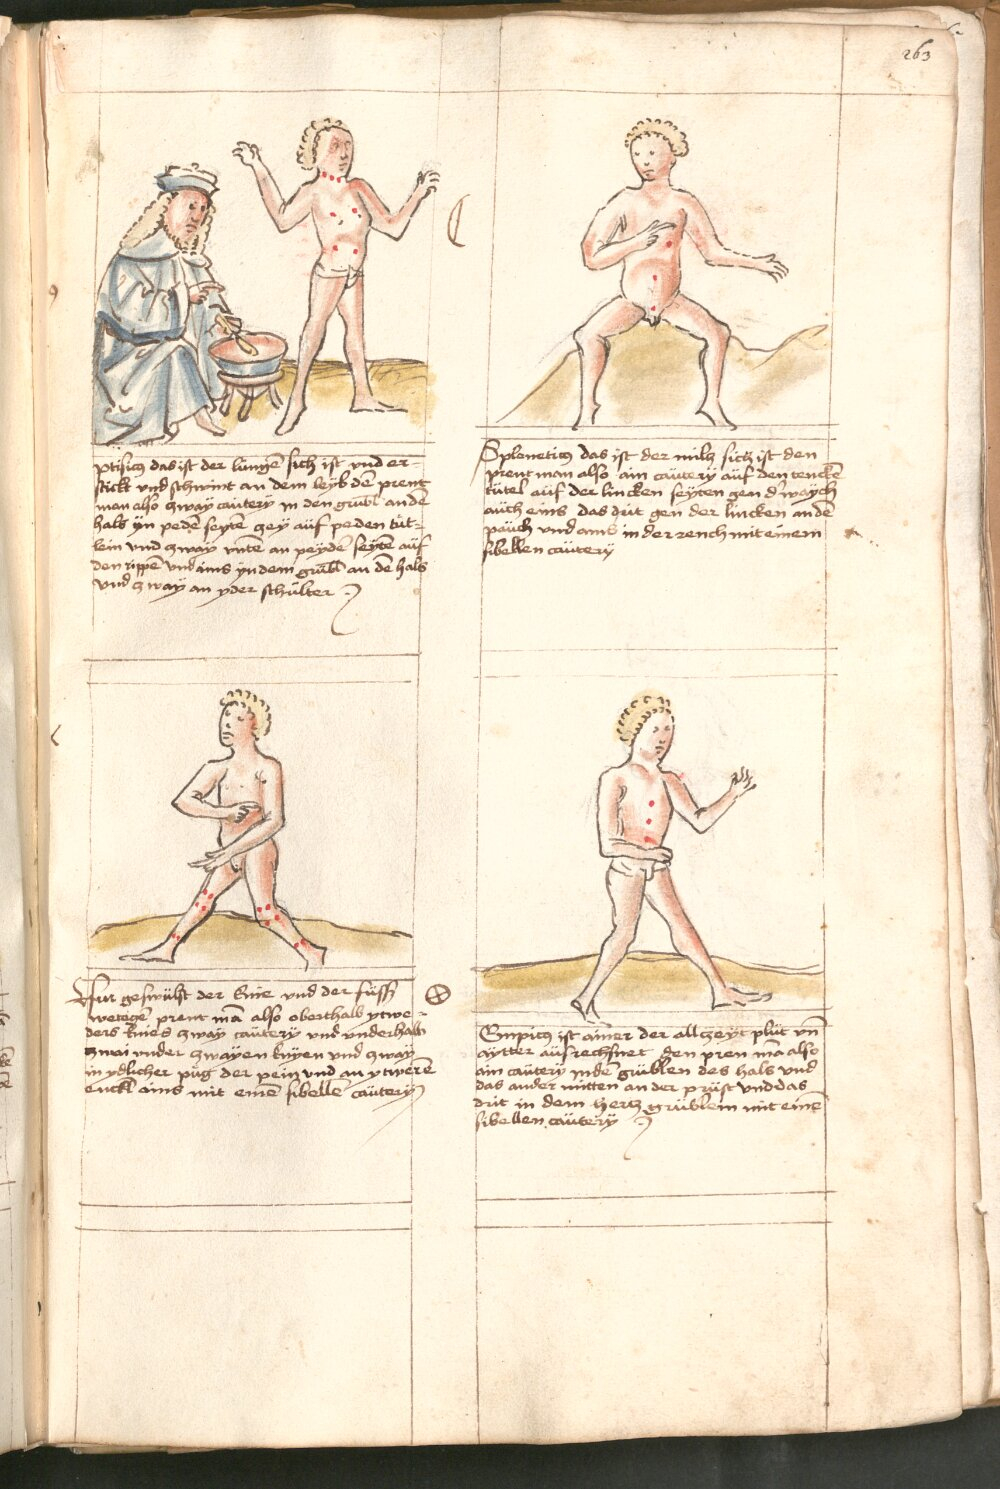 263
ptisicus das ist der lungen sich ist und er-
stickt und schwint an dem leyb dē prent
man also zway cautery in den grubl an dē
hals yn pedē seytē zey auf peden tut-
lein und zway untē an peydē seytē auf
den rippē und ains yn dem grubl an dē hals
und zway an yder schulter
Spleneticus das ist der milz sich ist den
prent man also ain cautery auf den tencken
tutel auf der lincken seyten gen d waych
auch eins das drit gen der lincken an dē
pauch und ains in der rench mit einem
sibellen cautery
Fur geswulst der knie und der fuss
wetagē prent mā also oberthalb ytwe-
ders knies zway cautery und underhalb
zwai under zwayen knyen und zway
in ydlicher pug der pein und an ytwerē
enckl ains mit einē sibellē cautery
Enpicus ist ainer der allzeyt plut uñ
aytter ausrechsnet den pren mā also
ain cautery yn dē grublen des hals und
das ander mitten an der prust und das
drit in dem hertz grublein mit einē
sibellen cautery